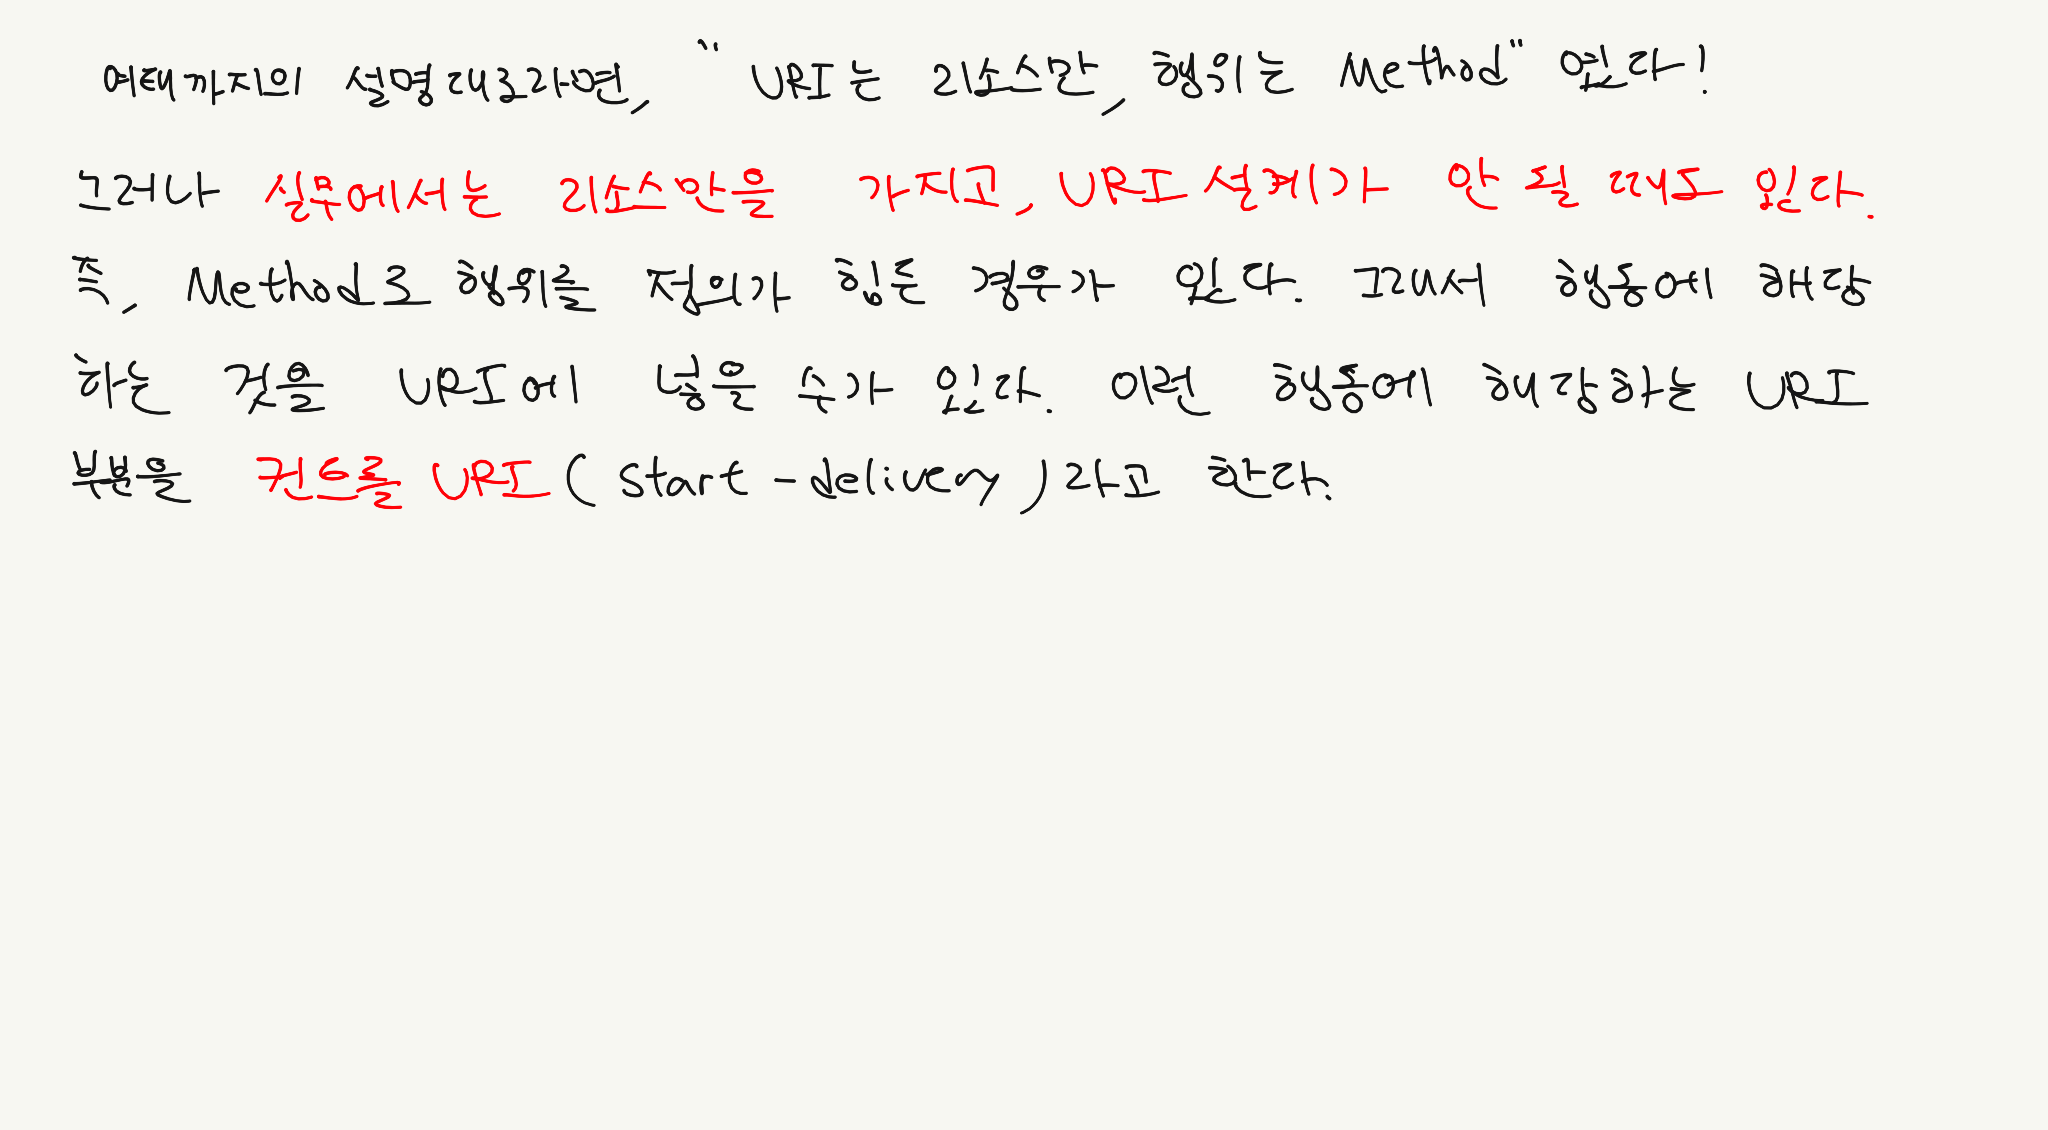 여태까지의 설명대로라면, "URI는 리소스만, 행위는 Method" 였다!
그러나 실무에서는 리소스만을 가지고, URI설계가 안 될 때도 있다.
즉, Method로 행위를 정의가 힘든 경우가 있다. 그래서 행동에 해당
하는 것을 URI에 넣을 수가 있다. 이런 행동에 해당하는 URI
부분을 컨트롤 URI (start-delivery)라고 한다.